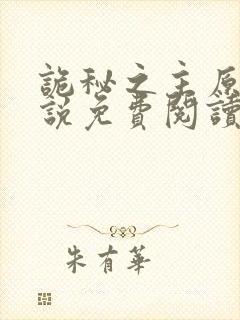 詭秘之主原
說免費閱讀
朱有華